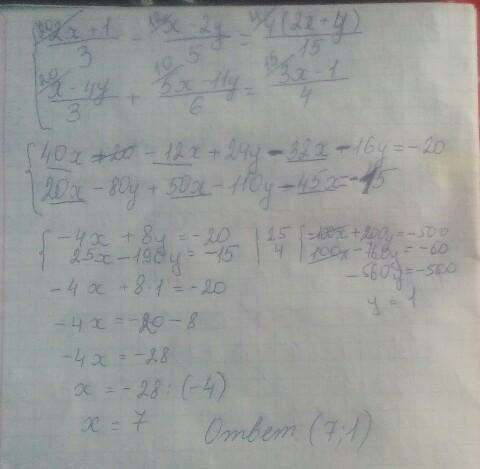 { 2x+1/3 - x-2y/5 = 4(2x+y)/15
x-4y/3 + 5x-11y/6 = 3x-1/4
{ 40x+20-12x+24y-32x-16y=-20
20x-80y+50x-110y-45x=-15
{ -4x+8y=-20 | 25 { -100x+200y=-500
25x-190y=-15 | 4 100x-760y=-60
-560y=-560
-4x+8·1=-20
y=1
-4x=-20-8
-4x=-28
x=-28:(-4)
x=7
Ответ (7;1)